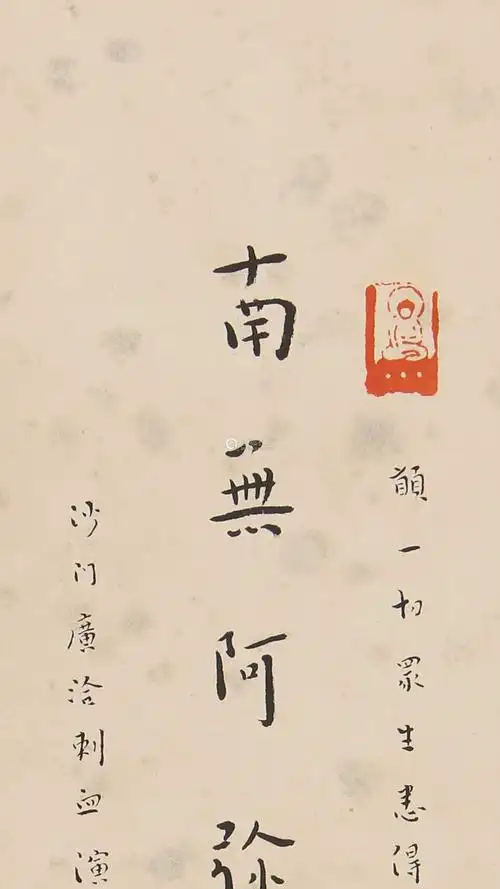 願一切眾生悉得
南無阿弥
沙門廣洽刺血演